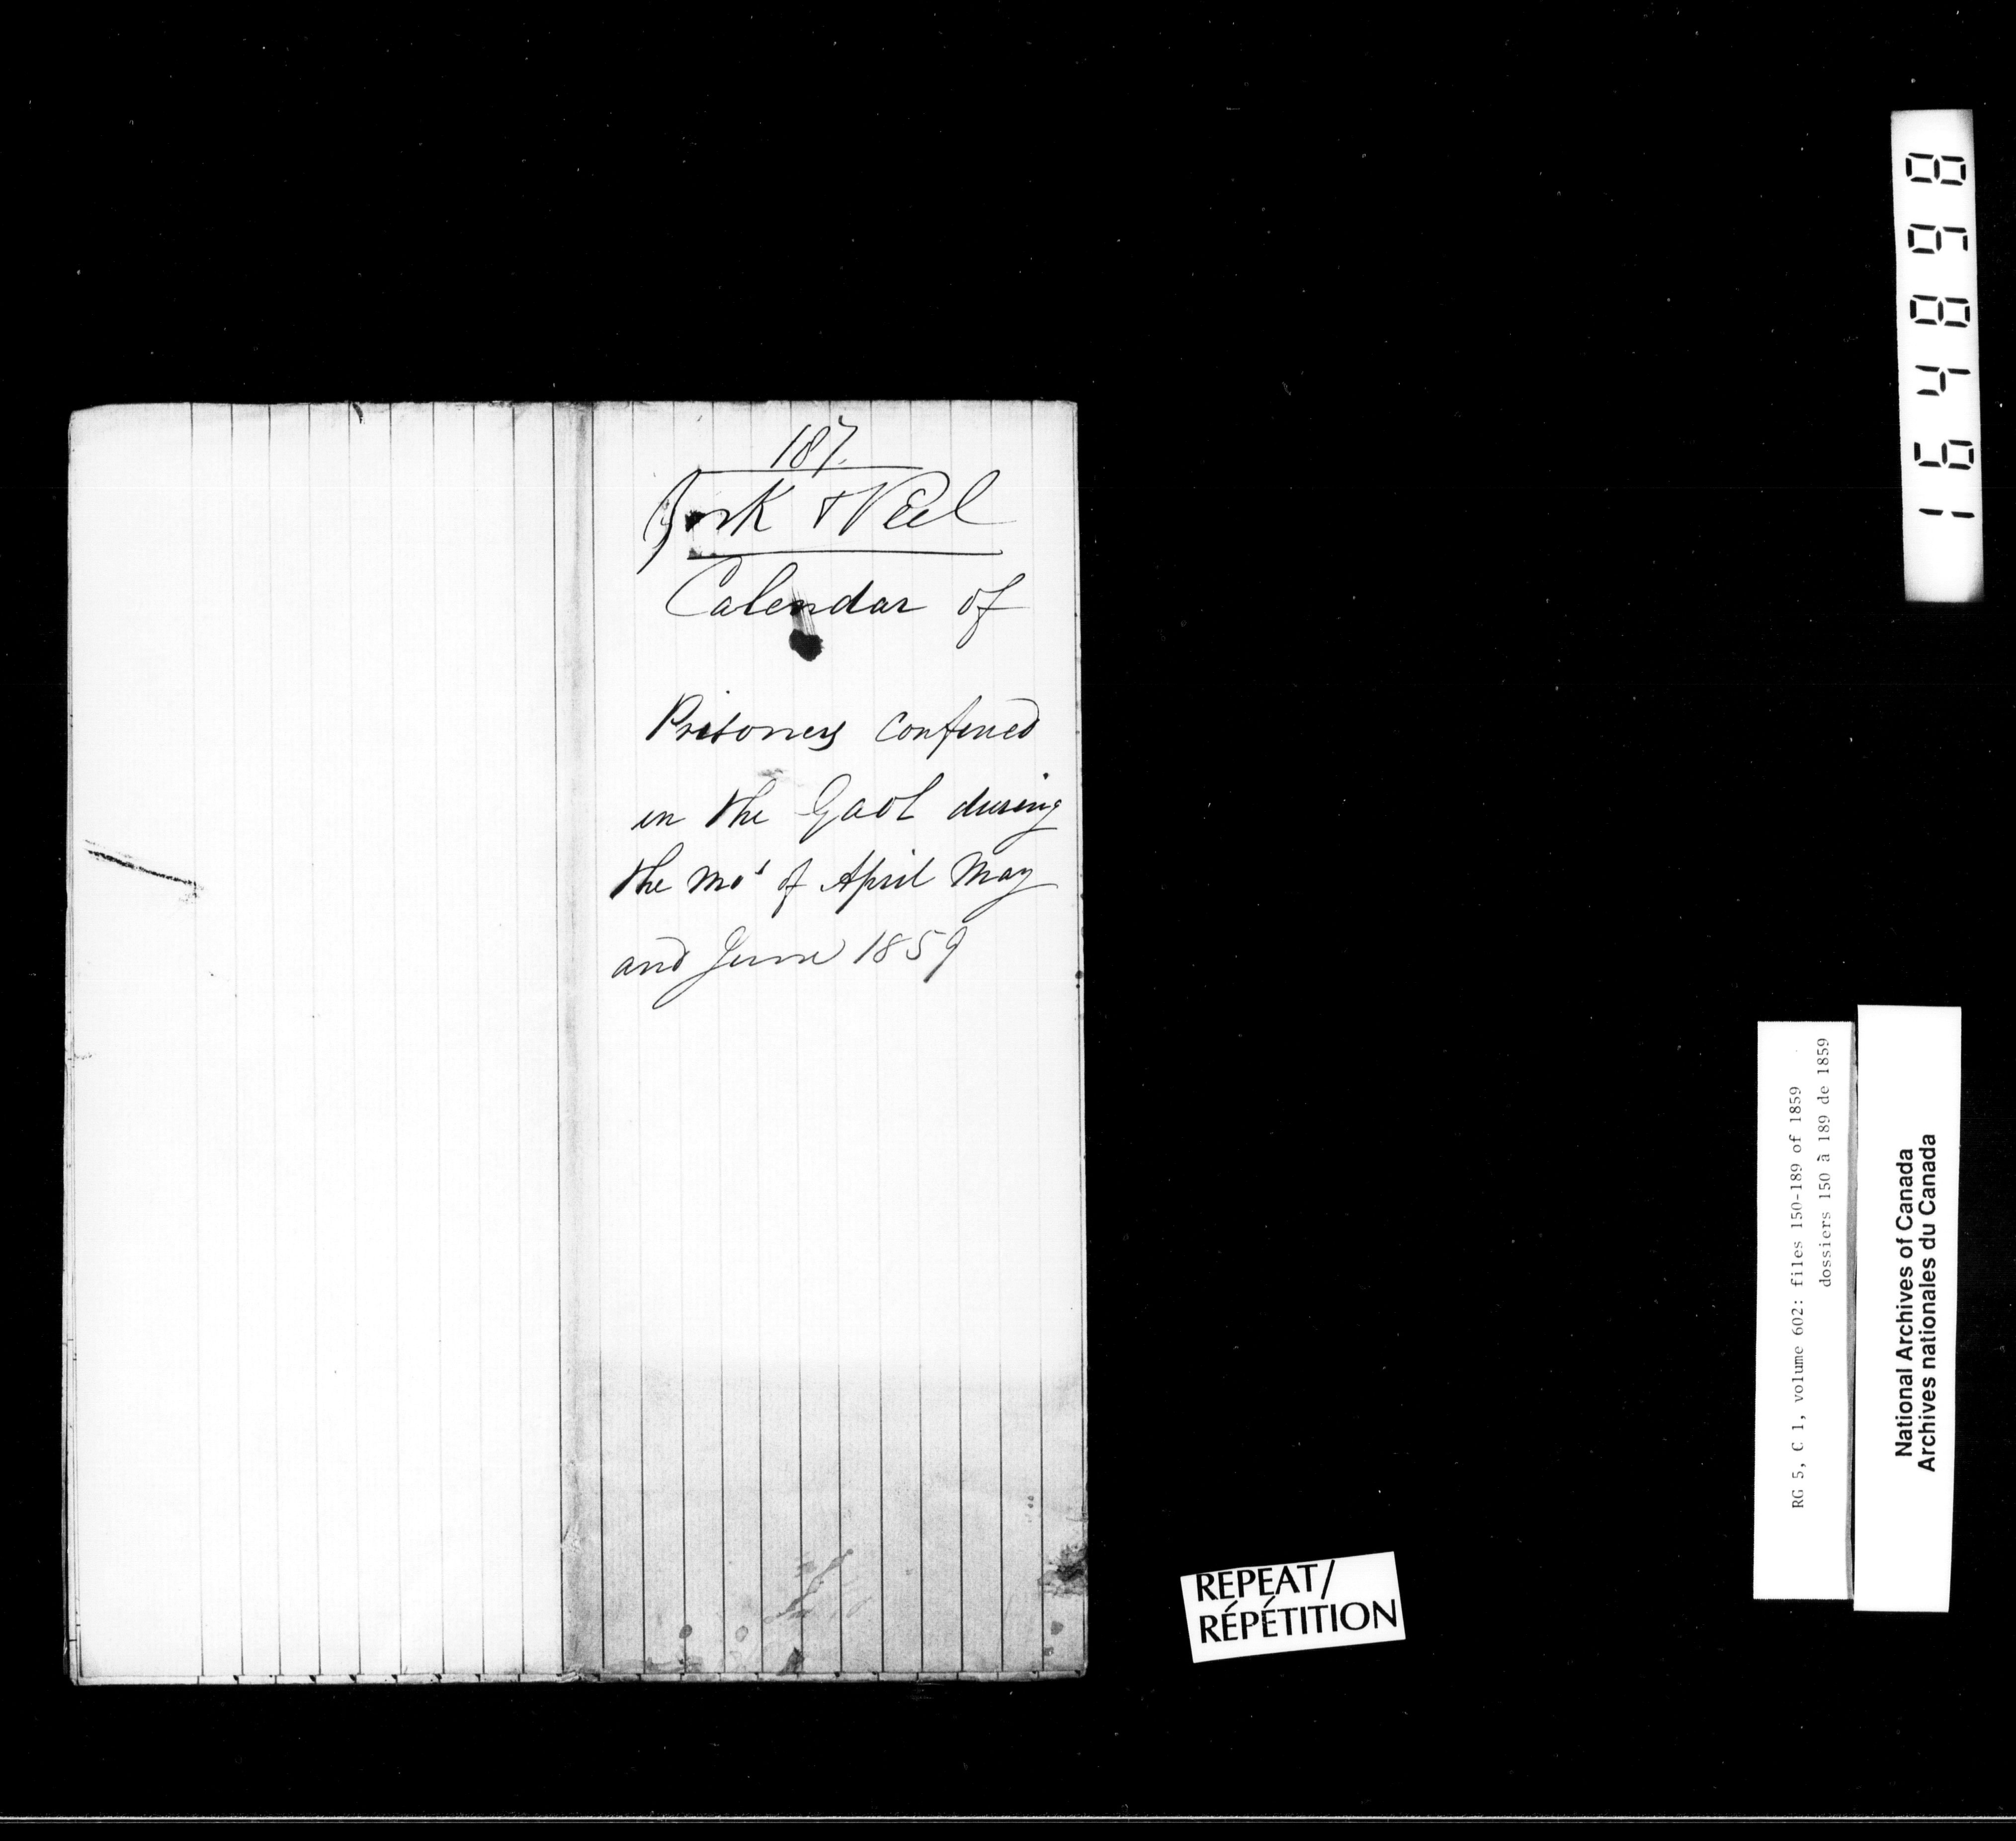 187.
York & Peel
Calendar of
Prisoners confined
in the Gaol during
the mos of April May
and June 1859
REPEAT/
RÉPÉTITION
164898
RG 5, C 1, volume 602: files 150-189 of 1859
dossiers 150 à 189 de 1859
National Archives of Canada
Archives nationales du Canada